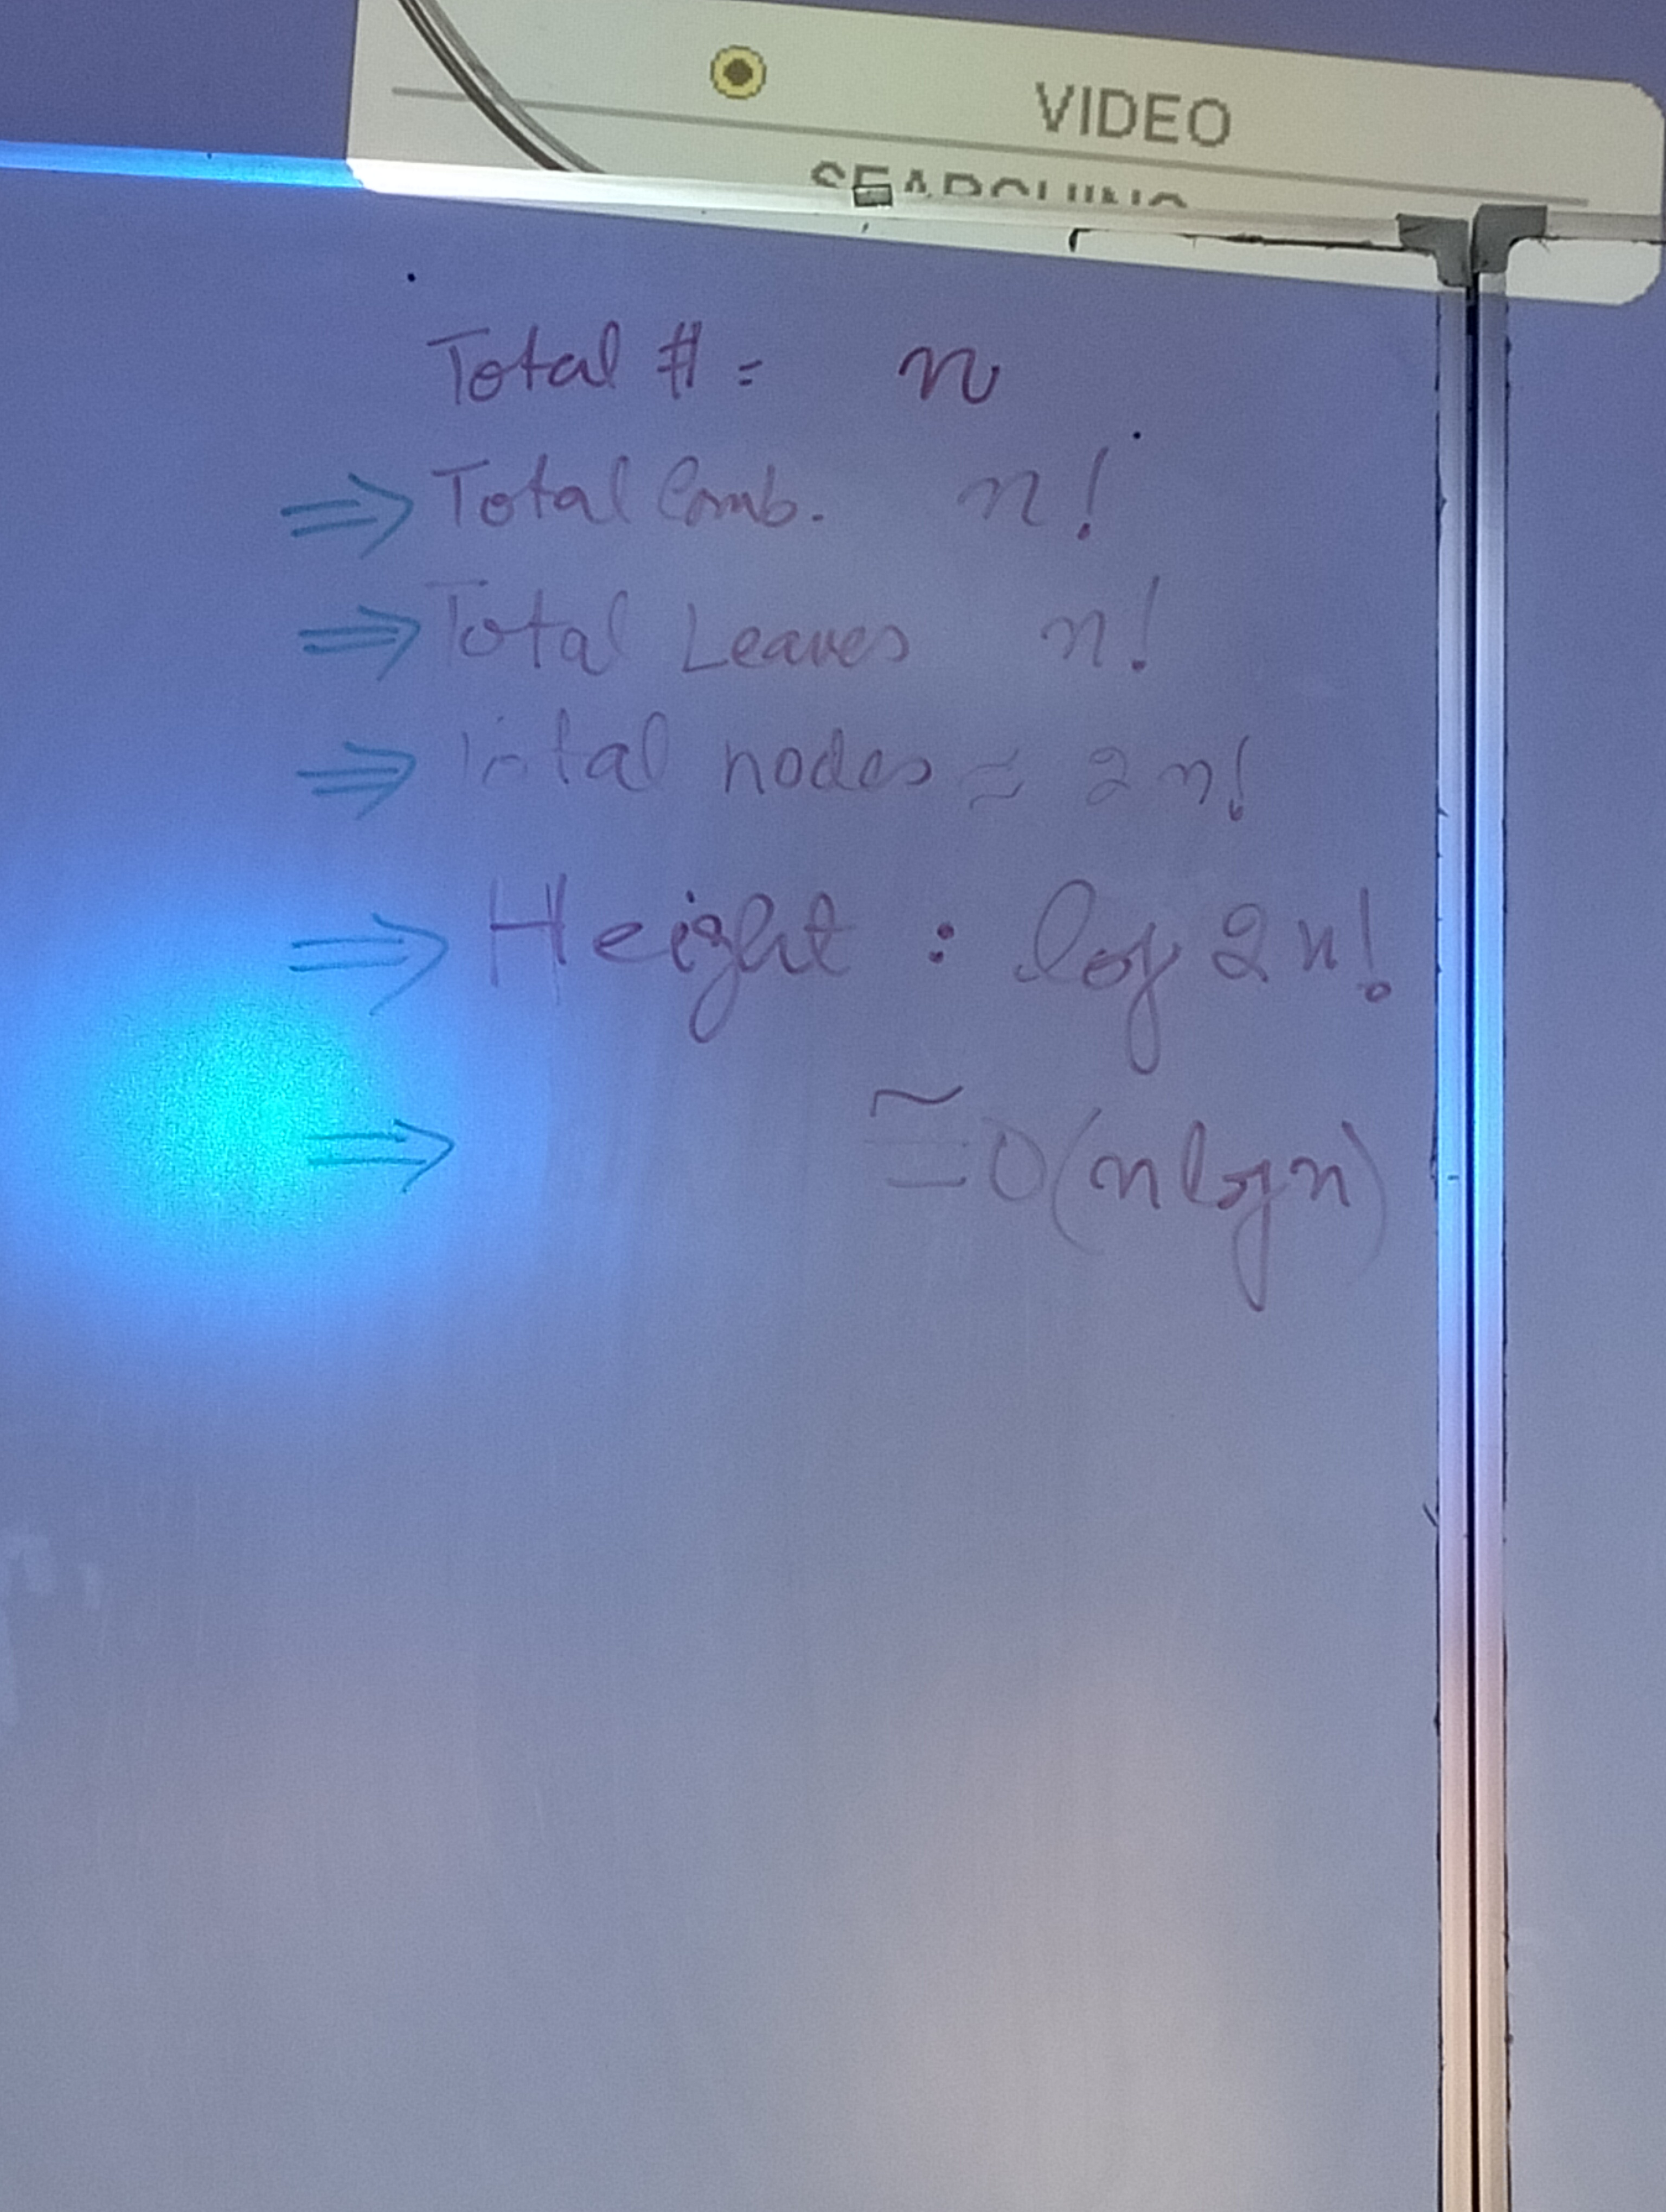 VIDEO
SEARCHING
Total # = n
⇒ Total Comb. n!
⇒ Total Leaves n!
⇒ Total nodes ≈ 2n!
⇒ Height : log 2n!
⇒ ≅ O(n log n)